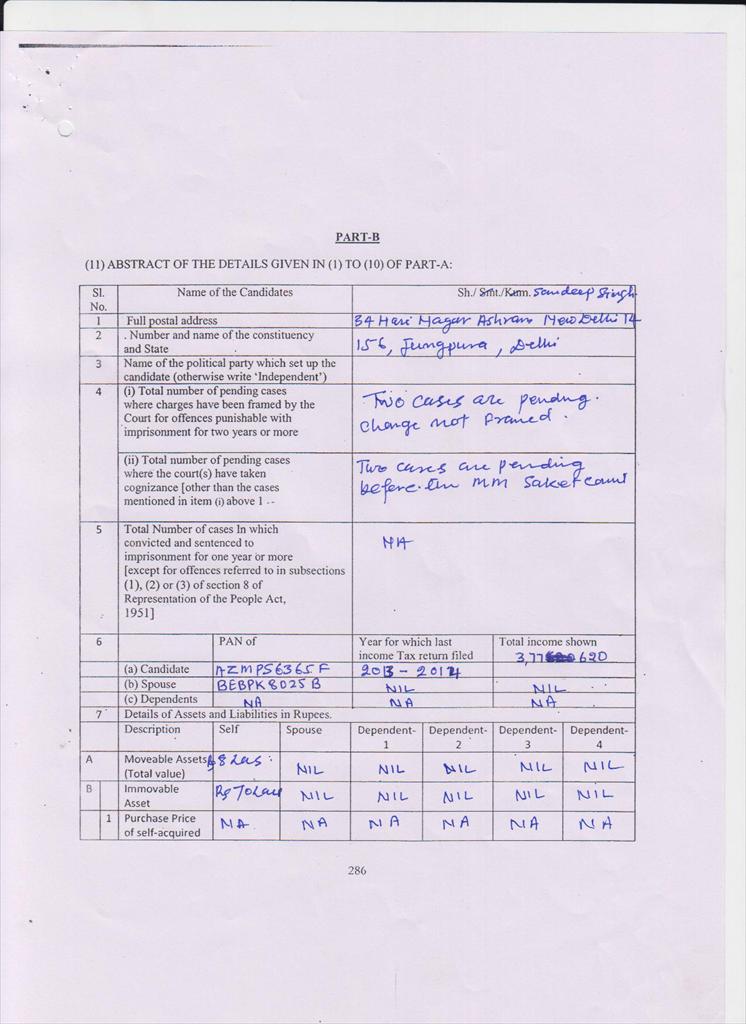 PART-B
(11) ABSTRACT OF THE DETAILS GIVEN IN (1) TO (10) OF PART-A:
Sl. No. Name of the Candidates Sh./ Smt./Kum. Sandeep Singh
1 Full postal address 34 Hari Nagar Ashram New Delhi 14
2 . Number and name of the constituency and State 156, Jungpura, Delhi
3 Name of the political party which set up the candidate (otherwise write 'Independent')
4 (i) Total number of pending cases Two cases are pending.
where charges have been framed by the change not framed.
Court for offences punishable with
imprisonment for two years or more
(ii) Total number of pending cases Two cases are pending
where the court(s) have taken before MM Saket court
cognizance [other than the cases
mentioned in item (i) above 1 --
5 Total Number of cases In which
convicted and sentenced to NA
imprisonment for one year or more
[except for offences referred to in subsections
(1), (2) or (3) of section 8 of
Representation of the People Act,
1951]
6 PAN of Year for which last income Tax return filed Total income shown 3,77 620
(a) Candidate AZMPS6365F 2013 - 2014
(b) Spouse BEBPK8025B NIL NIL
(c) Dependents NA NA NA
7 Details of Assets and Liabilities in Rupees.
Description Self Spouse Dependent-1 Dependent-2 Dependent-3 Dependent-4
A Moveable Assets (Total value) 8 Las NIL NIL NIL NIL NIL
B Immovable Asset Rs 70 Lac NIL NIL NIL NIL NIL
1 Purchase Price of self-acquired NA NA NA NA NA NA
286